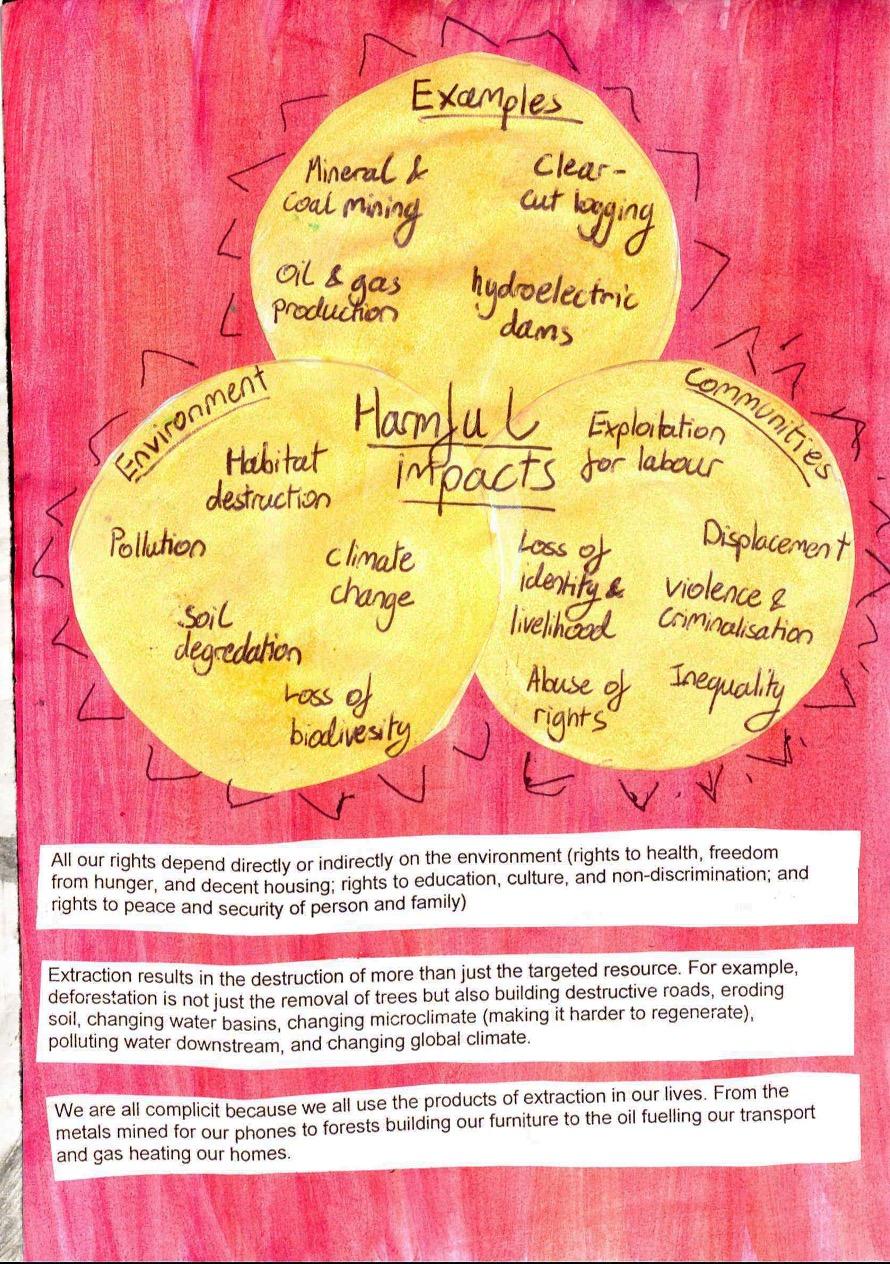 Examples
Mineral &
coal mining
Clear-
cut logging
Oil & gas
production
hydroelectric
dams
Harmful
impacts
Environment
Habitat
destruction
Pollution
climate
change
soil
degredation
Loss of
biodivesity
Communities
Exploitation
for labour
Displacement
Loss of
identity &
livelihood
violence &
criminalisation
Abuse of
rights
Inequality
All our rights depend directly or indirectly on the environment (rights to health, freedom
from hunger, and decent housing; rights to education, culture, and non-discrimination; and
rights to peace and security of person and family)
Extraction results in the destruction of more than just the targeted resource. For example,
deforestation is not just the removal of trees but also building destructive roads, eroding
soil, changing water basins, changing microclimate (making it harder to regenerate),
polluting water downstream, and changing global climate.
We are all complicit because we all use the products of extraction in our lives. From the
metals mined for our phones to forests building our furniture to the oil fuelling our transport
and gas heating our homes.